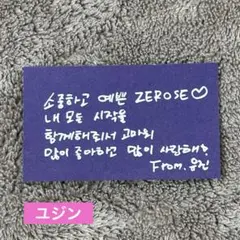 소중하고 예쁜 ZEROSE♡
내 모든 시작을
함께해줘서 고마워
많이 좋아하고 많이 사랑해♡
From. 유진
ユジン